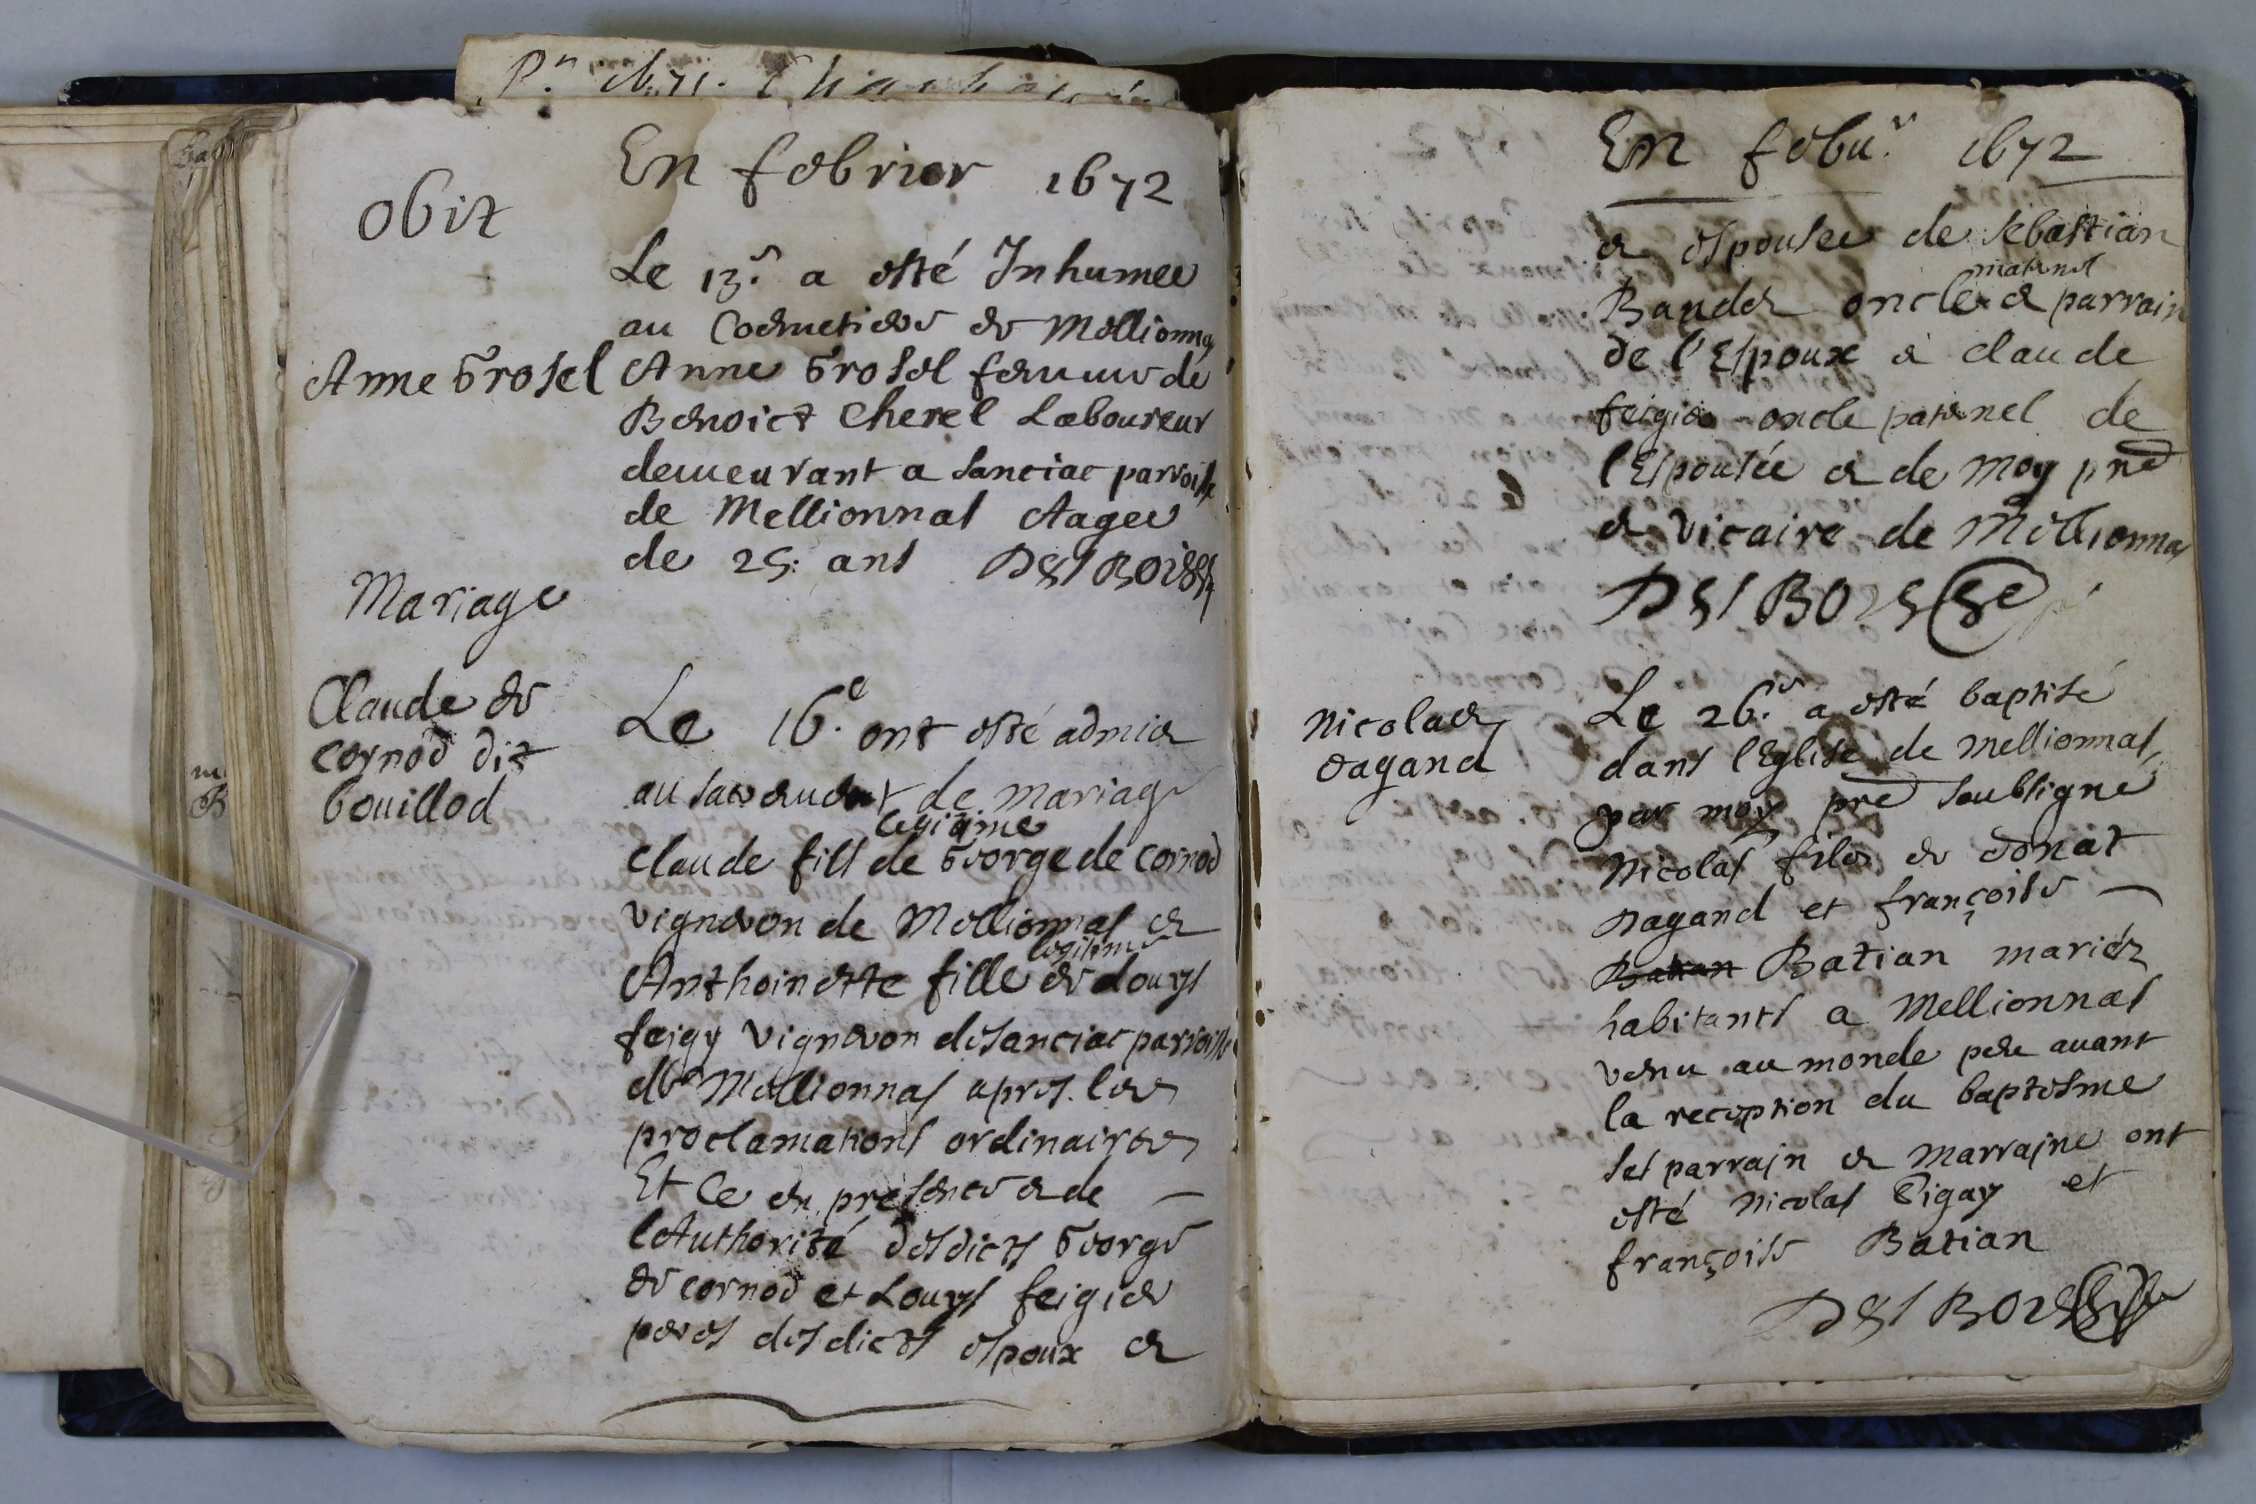 En febrier 1672
obit
Le 13.e a esté Inhumee
au Coemetiere de Mellionnas
Anne Grosel
Anne Grosel femme de
Benoict Cherel Laboureur
demeurant a Sanciac parroisse
de Mellionnas Aagee
de 25. ans DesBoisse
Mariage
Claude de
Cornod dit
bouillod
Le 16.e ont esté admis
au sacrement de mariage
legitime
Claude fils de George de Cornod
vigneron de Mellionnas et
legitime
Anthoinette fille de Louys
feigy vigneron de Sanciac parroisse
de Mellionnas apres les
proclamations ordinaires
Et Ce en presence et de
l'Authorité desdicts George
de Cornod et Louys feigie
peres desdicts espoux et
En febu.r 1672
et espousee de Sebastian
maternel
Baudet oncle et parrain
de l'Espoux et Claude
feigie oncle paternel de
l'Espousée et de moy pre
et vicaire de Mellionnas
DesBoisse
Nicolas
dagand
Le 26.e a esté baptisé
dans l'Eglise de mellionnas
par moy pre soubsigné
Nicolas fils de donat
Dagand et françoise
Batian Batian mariés
habitants a Mellionnas
venu au monde peu auant
la reception du baptesme
ses parrain et marraine ont
esté Nicolas Pigay et
françoise Batian
DesBoisse